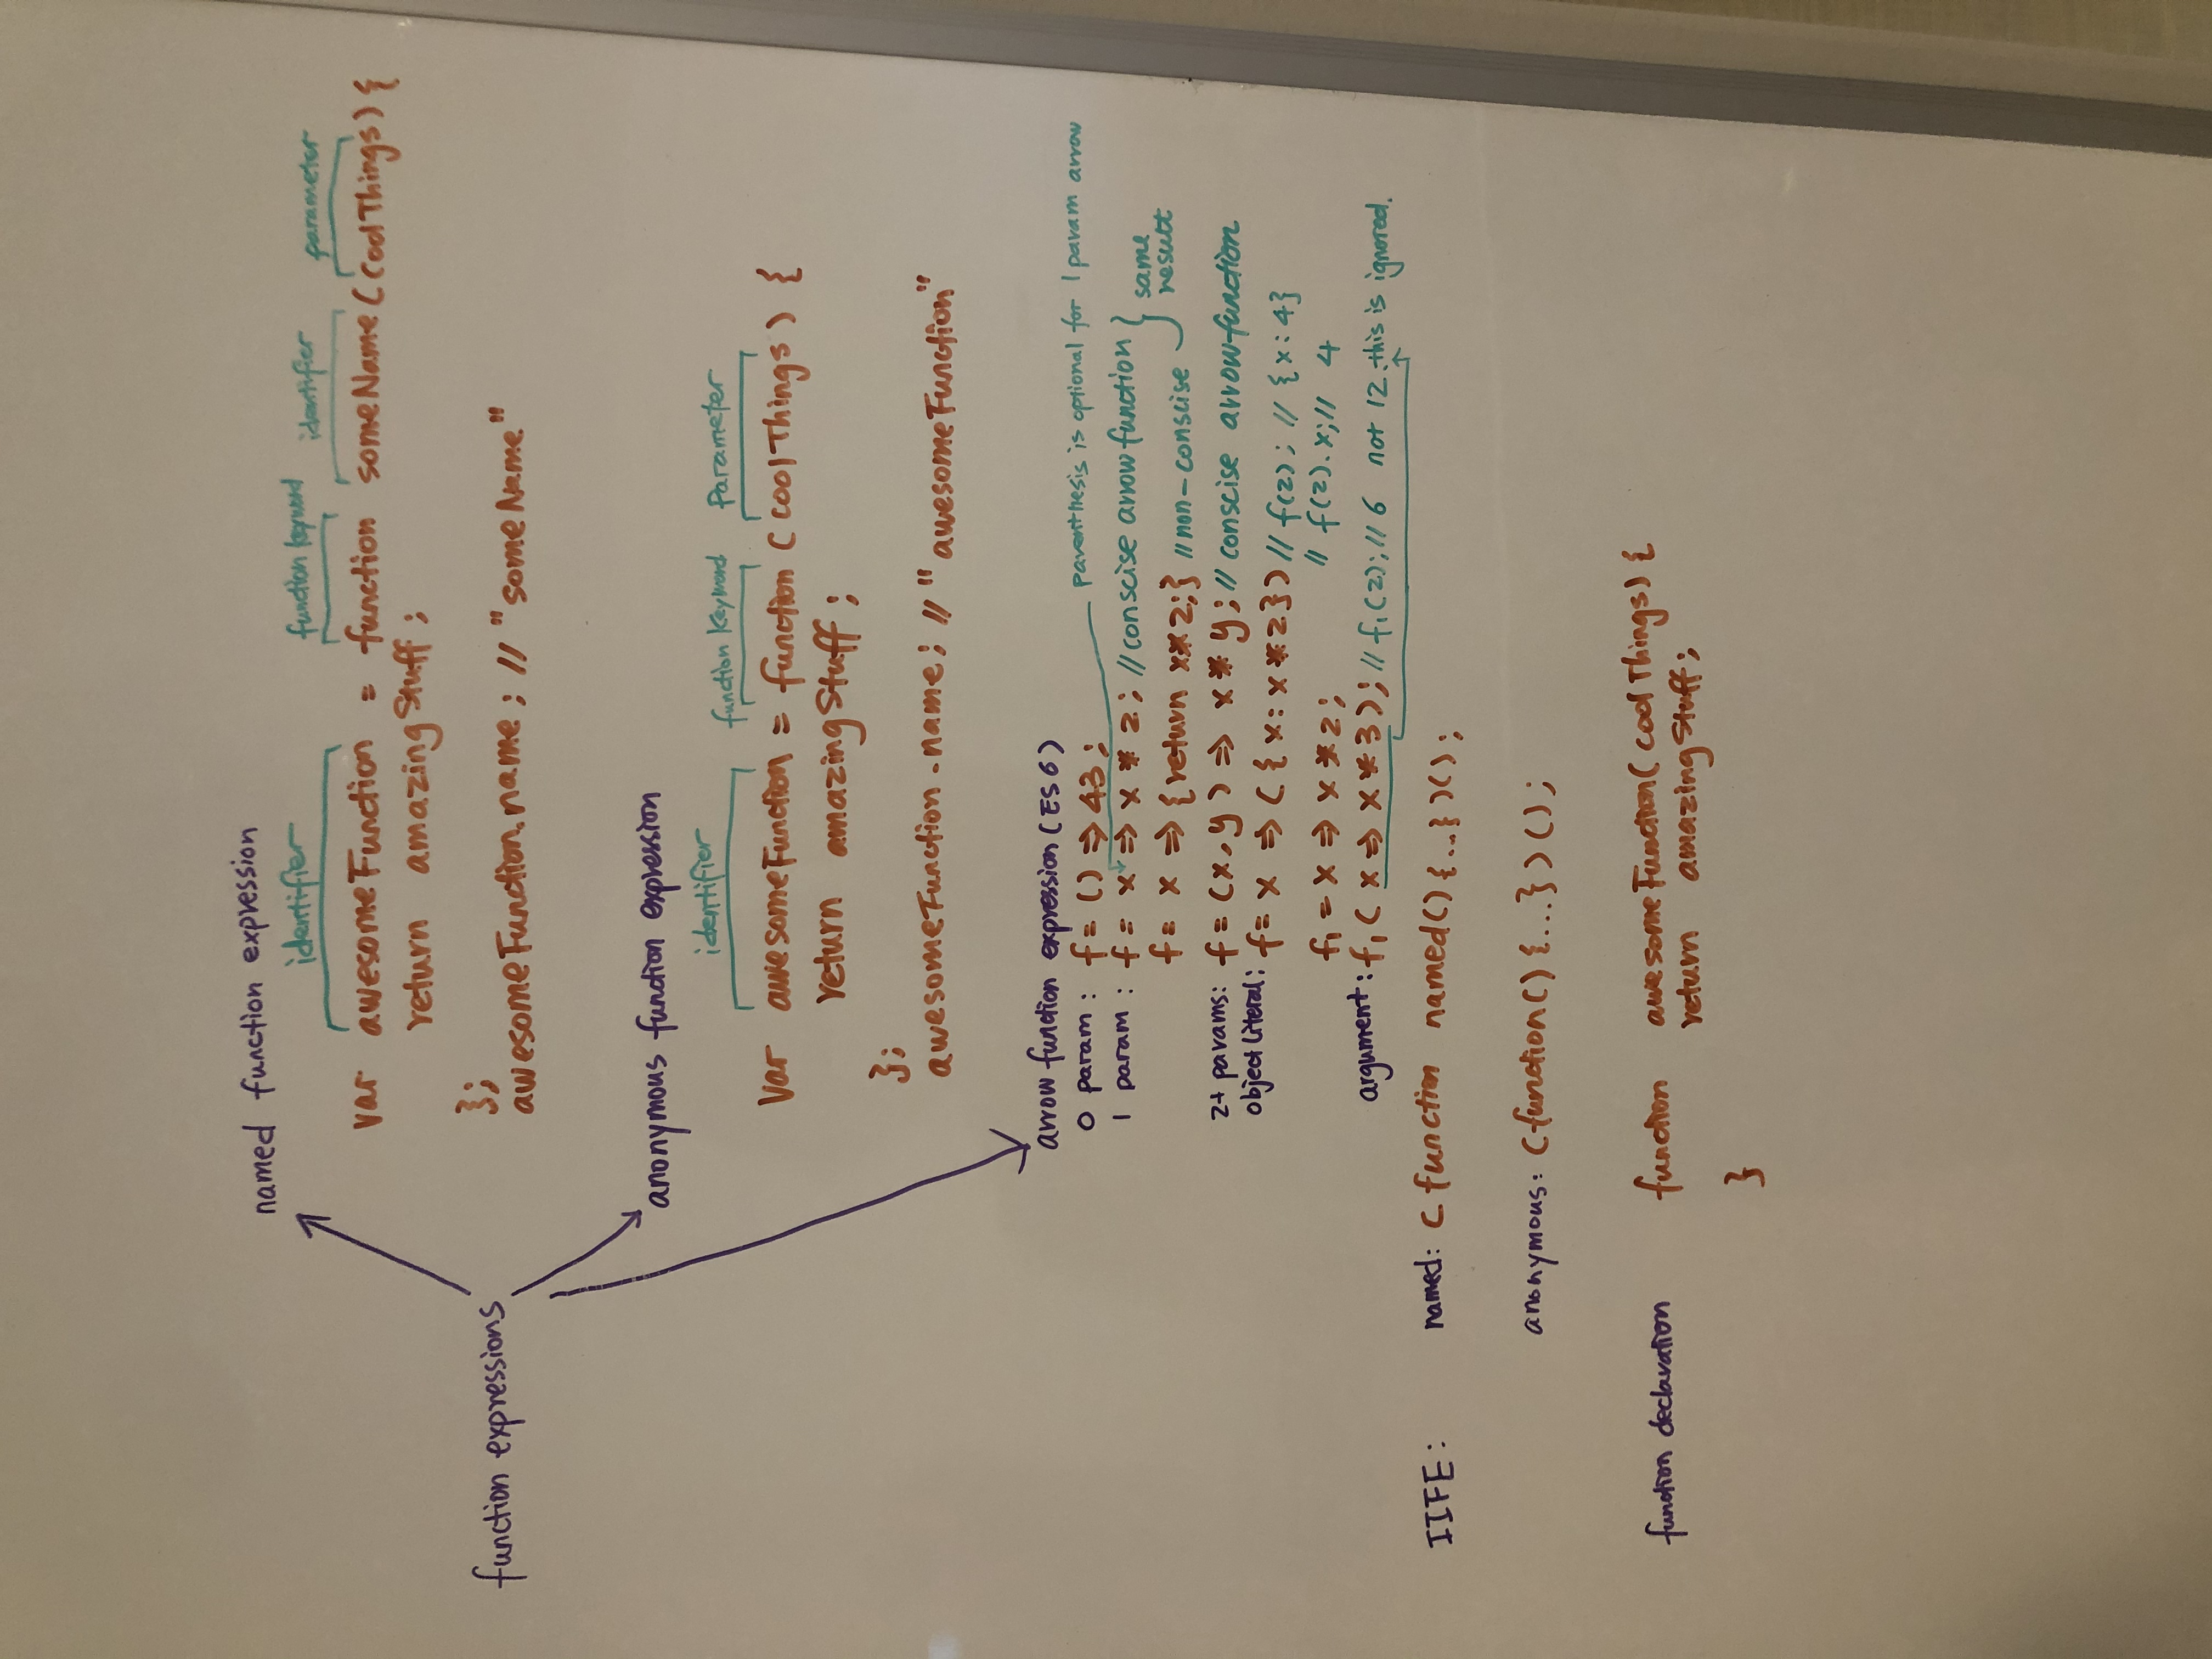 named function expression
identifier function keyword identifier parameter
var awesomeFunction = function someName (coolThings) {
return amazingStuff ;
};
function expressions
awesomeFunction.name ; // "someName"
anonymous function expression
identifier function keyword Parameter
Var awesomeFunction = function (coolThings) {
return amazingStuff ;
};
awesomeFunction.name; // "awesomeFunction"
arrow function expression (ES6)
0 param : f = () => 43 ; parenthesis is optional for 1 param arrow
1 param : f = x => x * 2; // conscise arrow function
f = x => {return x*2;} // non-conscise
same
result
2+ params: f = (x,y) => x * y; // conscise arrow function
object literal: f = x => ({x: x*2}) // f(2); // {x:4}
f1 = x => x*2; // f(2).x; // 4
argument: f1( x => x*3); // f1(2); // 6 not 12. this is ignored.
IIFE: named: (function named(){...})();
anonymous: (function(){...})();
function declaration function awesomeFunction(coolThings) {
return amazingStuff;
}